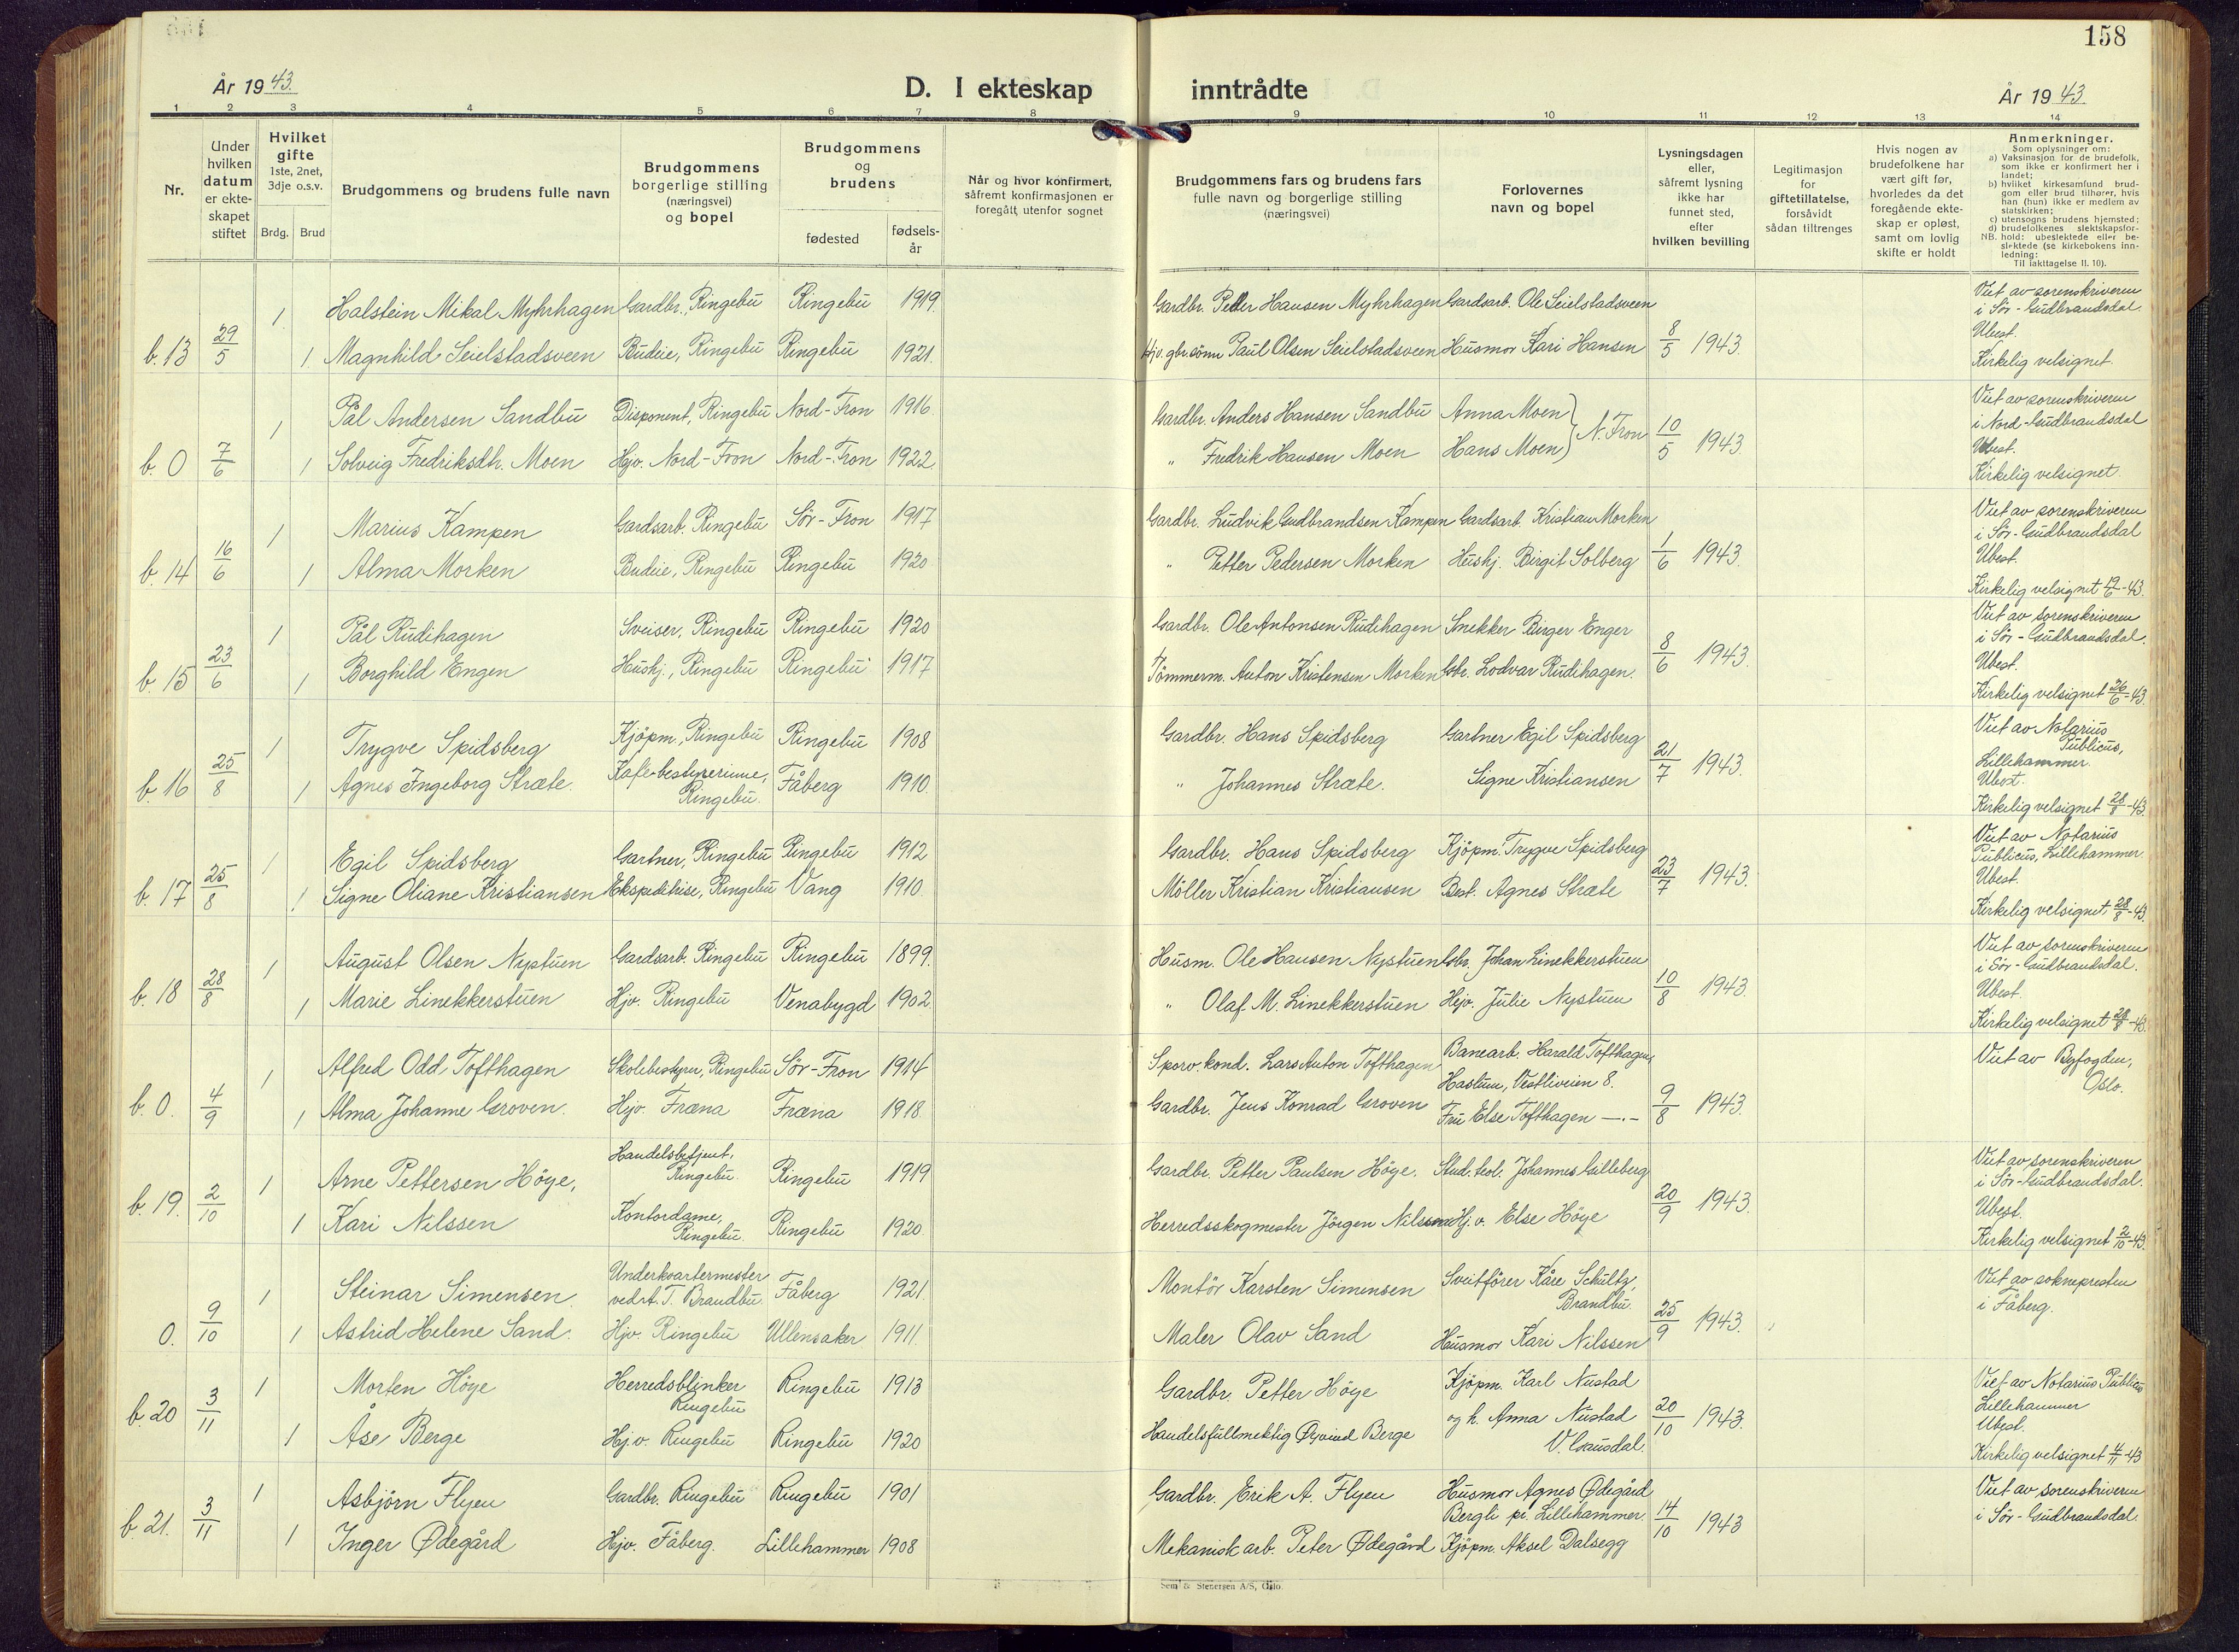 158
År 1943.
D. I ekteskap inntrådte
År 1943.
1 2 3 4 5 6 7 8 9 10 11 12 13 14
Nr.
Under hvilken datum er ekte-skapet stiftet
Hvilket gifte 1ste, 2net, 3dje o.s.v.
Brdg. Brud
Brudgommens og brudens fulle navn
Brudgommens borgerlige stilling (næringsvei) og bopel
Brudgommens og brudens
fødested
fødsels-år
Når og hvor konfirmert, såfremt konfirmasjonen er foregått utenfor sognet
Brudgommens fars og brudens fars fulle navn og borgerlige stilling (næringsvei)
Forlovernes navn og bopel
Lysningsdagen eller, såfremt lysning ikke har funnet sted, efter hvilken bevilling
Legitimasjon for giftetillatelse, forsåvidt sådan tiltrenges
Hvis nogen av brudefolkene har vært gift før, hvorledes da det foregående ekte-skap er opløst, samt om lovlig skifte er holdt
Anmerkninger.
Som oplysninger om:
a) Vaksinasjon for de brudefolk, som ikke er konfirmert her i landet;
b) hvilket kirkesamfund brud-gom eller brud tilhører, hvis han (hun) ikke er medlem av statskirken;
c) utensogns brudens hjemsted;
d) brudefolkenes slektskapsfor-hold: ubeslektede eller be-slektede (se kirkebokens inn-ledning:
NB. Til iakttagelse II. 10).
b. 13 29/5 1 Halstein Mikal Myhrhagen Gardbr., Ringebu Ringebu 1919. Gardbr. Petter Hansen Myhrhagen Gardsarb. Ole Seielstadsveen
1. Magnhild Seielstadsveen Budeie, Ringebu Ringebu 1921. Hjv. gbr.sönn Paul Olsen Seielstadsveen Husmor Kari Hansen 8/5 1943.
Viet av sorenskriveren
i Sör-Gudbrandsdal.
Ubest.
Kirkelig velsignet
b. 0 7/6 1 Pål Andersen Sandbu Disponent, Ringebu Nord-Fron 1916. Gardbr. Anders Hansen Sandbu Anna Moen
1 Solveig Fredriksdh. Moen Hjv. Nord-Fron Nord-Fron 1922. " Fredrik Hansen Moen Hans Moen } N. Fron 10/5 1943.
Viet av sorenskriveren
i Nord-Gudbrandsdal
Ubest.
Kirkelig velsignet.
b. 14 16/6 1 Marius Kampen Gardsarb. Ringebu Sör-Fron 1917 Gardbr. Ludvik Gudbrandsen Kampen Gardsarb. Kristian Morken
1 Alma Morken Budeie, Ringebu Ringebu 1920 " Petter Pedersen Morken Hushj. Birgit Solberg 1/6 1943.
Viet av sorenskriveren
i Sör-Gudbrandsdal
Ubest.
Kirkelig velsignet 19/6-43.
b. 15 23/6 1 Pål Rudihagen Sveiser, Ringebu Ringebu 1920 Gardbr. Ole Antonsen Rudihagen Snekker Birger Enger
1 Borghild Engen Hushj., Ringebu Ringebu 1917 Tömmerm. Anton Kristensen Morken Gbr. Lodvar Rudihagen. 8/6 1943.
Viet av sorenskriveren
i Sör-Gudbrandsdal.
Ubest.
Kirkelig velsignet 26/6-43
b. 16 25/8 1 Trygve Spidsberg Kjöpm., Ringebu Ringebu 1908 Gardbr. Hans Spidsberg Gartner Egil Spidsberg
1 Agnes Ingeborg Stræte. Kafe-bestyrerinne, Ringebu. Fåberg 1910. " Johannes Stræte. Signe Kristiansen 21/7 1943.
Viet av Notarius
Publicus,
Lillehammer.
Ubest.
Kirkelig velsignet 28/8-43
b. 17 25/8 1 Egil Spidsberg Gartner, Ringebu Ringebu 1912 Gardbr. Hans Spidsberg Kjöpm. Trygve Spidsberg
1 Signe Oliane Kristiansen Ekspeditrise, Ringebu Vang 1910. Möller Kristian Kristiansen Best. Agnes Stræte 23/7 1943.
Viet av Notarius
Publicus, Lillehammer
Ubest.
Kirkelig velsignet 28/8-43.
b. 18 28/8 1 August Olsen Nystuen Gardsarb. Ringebu Ringebu 1899. Husm. Ole Hansen Nystuen Gbr. Johan Linekkerstuen
1 Marie Linekkerstuen Hjv. Ringebu Venabygd 1902 " Olaf M. Linekkerstuen Hjv. Julie Nystuen 10/8 1943.
Viet av sorenskriveren
i Sör-Gudbrandsdal.
Ubest.
Kirkelig velsignet 28/8-43.
b. 0. 4/9 1 Alfred Odd Tofthagen Skolebestyrer, Ringebu Sör-Fron 1914 Sporv.kond. Lars Anton Tofthagen Banearb. Harald Tofthagen, Haslum, Vestliveien 8.
1 Alma Johanne Groven. Hjv. Fræna Fræna 1918. Gardbr. Jens Konrad Groven Fru Else Tofthagen —.— 9/8 1943.
Viet av Byfogden,
Oslo.
b. 19. 2/10 1 Arne Pettersen Höye, Handelsbetjent, Ringebu. Ringebu 1919 Gardbr. Petter Paulsen Höye. Stud. teol. Johannes Gilleberg
1 Kari Nilssen Kontordame, Ringebu. Ringebu 1920. Herredsskogmester Jörgen Nilssen Hj.v. Else Höye 20/9 1943.
Viet av sorenskriveren
i Sör-Gudbrandsdal.
Ubest.
Kirkelig velsignet 2/10-43.
0. 9/10 1 Steinar Simensen. Underkvartermester ved A.T. Brandbu. Fåberg 1921. Montör Karsten Simensen Sveitförer Kåre Schultz, Brandbu.
1 Astrid Helene Sand. Hjv. Ringebu Ullensaker 1911. Maler Olav Sand Husmor Kari Nilssen 25/9 1943.
Viet av sokneprestem
i Fåberg.
b. 20 3/11 1 Morten Höye Herredsblinker Ringebu Ringebu 1913 Gardbr. Petter Höye Kjöpm. Karl Nustad
1 Åse Berge Hj.v. Ringebu Ringebu 1920 Handelsfullmektig Øyvind Berge og h. Anna Nustad V. Gausdal. 20/10 1943.
Viet av Notarius Publicus
Lillehammer
Ubest.
Kirkelig velsignet 4/11-43
b. 21. 3/11 1 Asbjörn Flyen Gardbr. Ringebu Ringebu 1901 Gardbr. Erik A. Flyen Husmor Agnes Ødegård Bergli pr. Lillehammer.
1 Inger Ødegård Hjv. Fåberg. Lillehammer 1908 Mekanisk arb. Peter Ødegård Kjöpm. Aksel Dalsegg 14/10 1943
Viet av sorenskriveren
i Sör-Gudbrandsdal.
Sem & Stenersen A/S, Oslo.